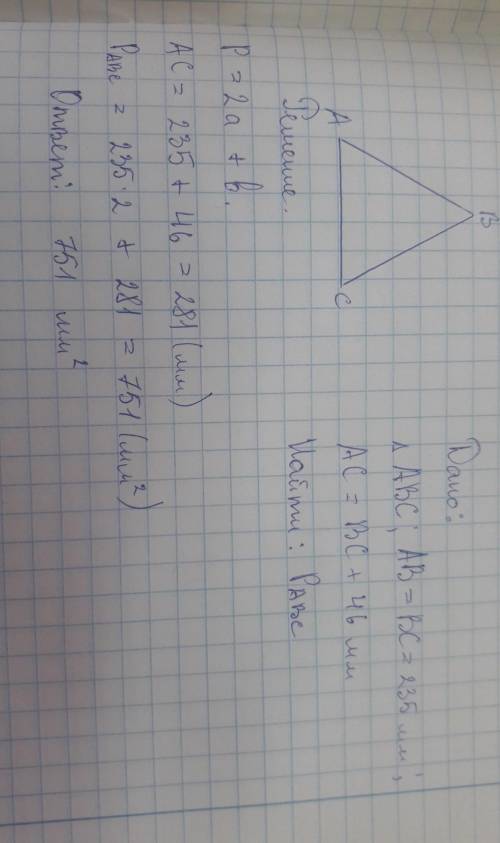 B
A
C
Дано:
Δ ABC; AB = BC = 235 мм;
AC = BC + 46 мм
Найти: P ABC
Решение.
P = 2a + b.
AC = 235 + 46 = 281 (мм)
P ABC = 235 · 2 + 281 = 751 (мм²)
Ответ: 751 мм²